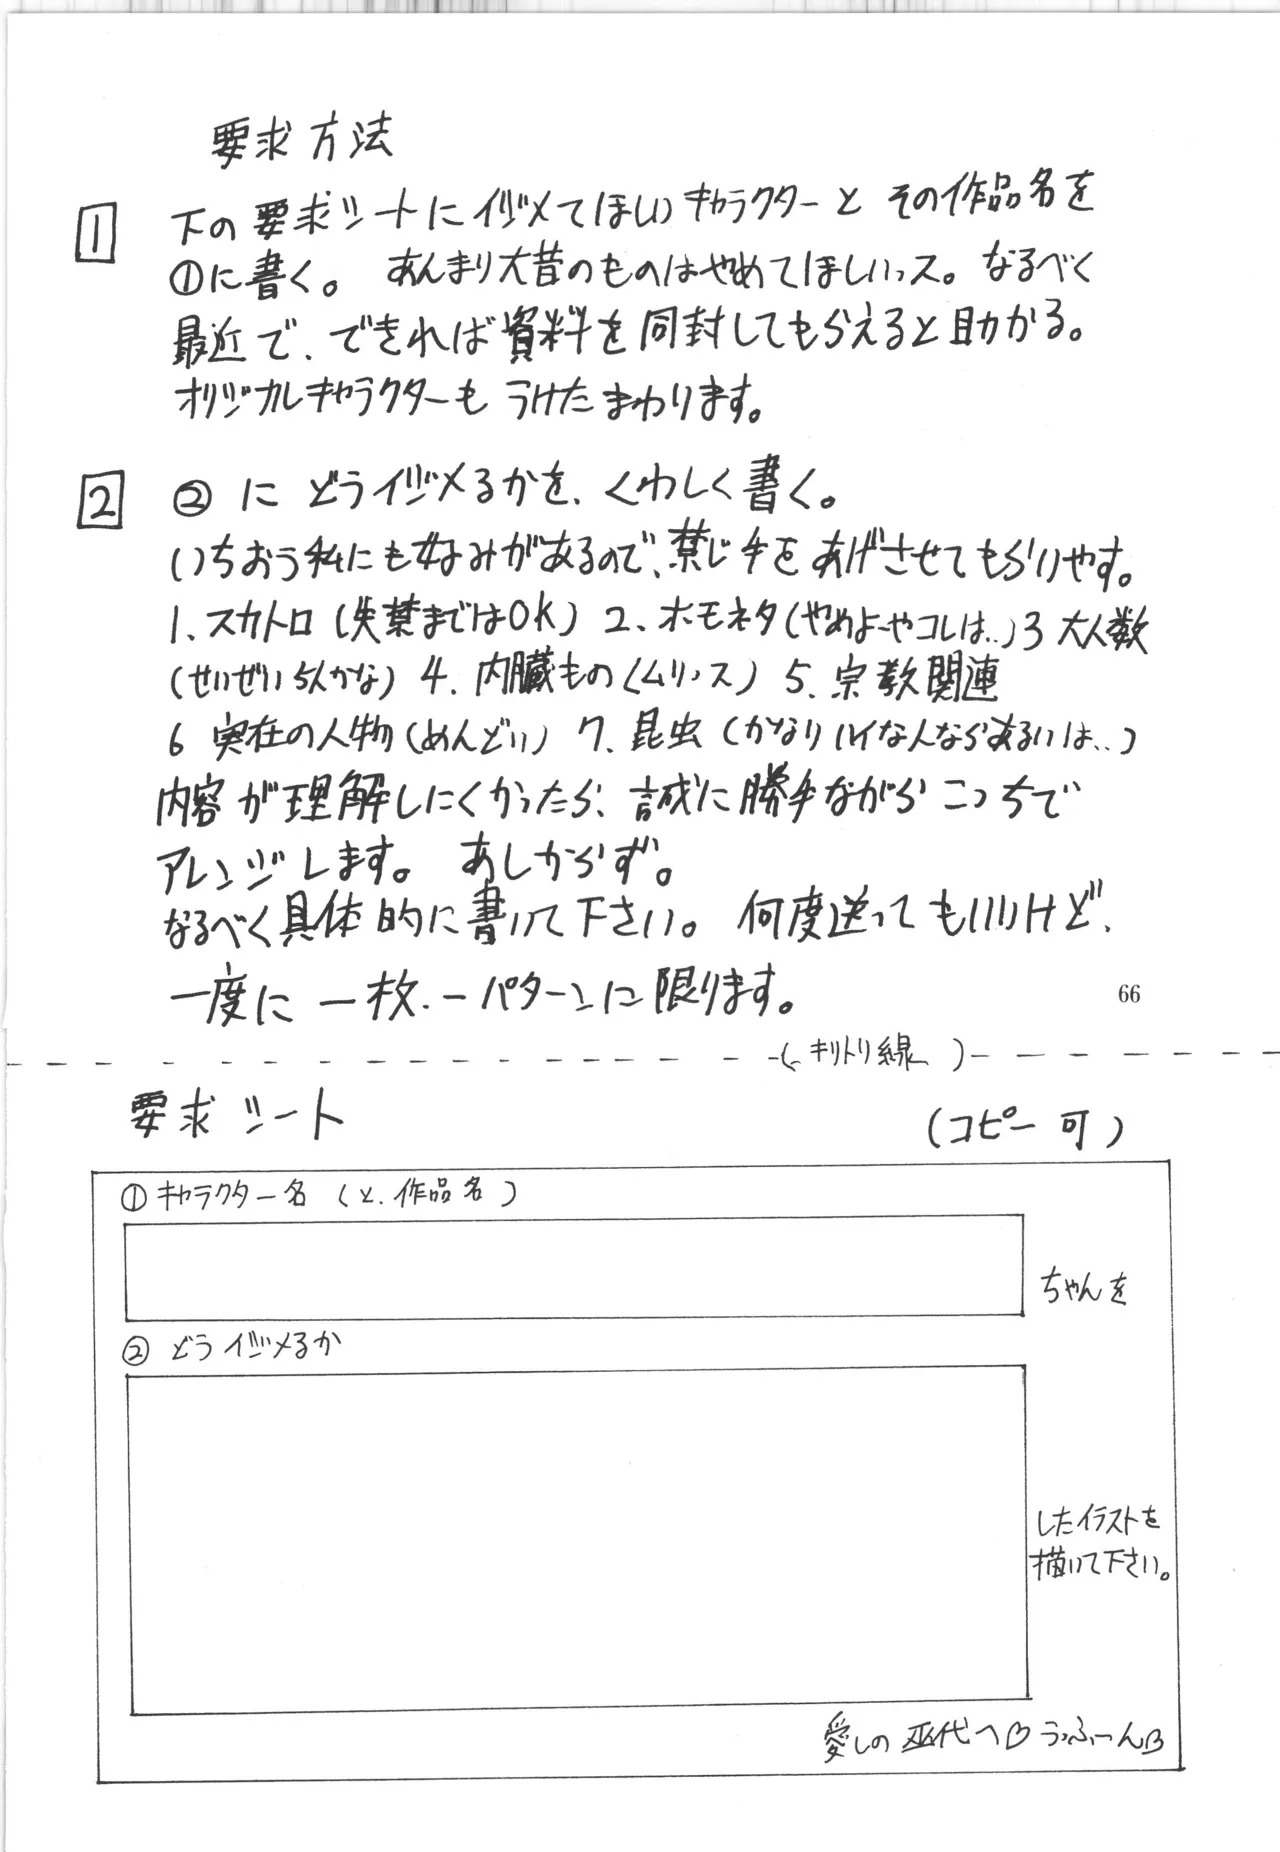 要求方法
1 下の要求シートにイジメてほしいキャラクターとその作品名を
①に書く。 あんまり大昔のものはやめてほしいっス。なるべく
最近で、できれば資料を同封してもらえると助かる。
オリジナルキャラクターもうけたまわります。
2 ②にどうイジメるかを、くわしく書く。
いちおう私にも好みがあるので、禁じ手をあげさせてもらいやす。
1、スカトロ(失禁まではOK) 2、ホモネタ(やめよーやコレは..) 3 大人数
(せいぜい5人かな) 4、内臓もの(ムリっス) 5、宗教関連
6 実在の人物(めんどい) 7、昆虫(かなりハイな人ならあるいは..)
内容が理解しにくかったら、誠に勝手ながらこっちで
アレンジします。 あしからず。
なるべく具体的に書いて下さい。 何度送ってもいいけど、
一度に一枚、一パターンに限ります。
66
(キリトリ線)
要求シート (コピー可)
①キャラクター名(と、作品名)
ちゃんを
②どうイジメるか
したイラストを
描いて下さい。
愛しの巫代へ♡うっふーん♡